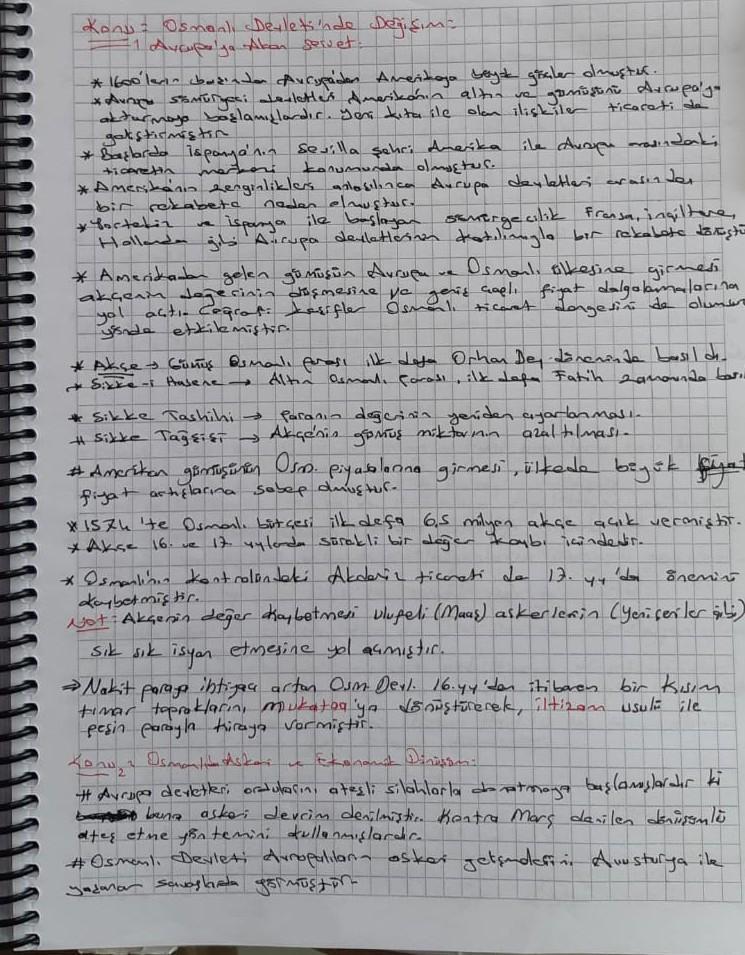 Konu: Osmanlı Devleti'nde Değişim:
1 Avrupa'ya Akan Servet:
* 1600'ların başından Avrupa'dan Amerikaya büyük göçler olmuştur.
* Avrupa sömürgeci devletleri Amerikanın altın ve gümüşünü Avrupa'ya
akturmaya başlamışlardır. Yeni kıta ile olan ilişkiler ticareti de
geliştirmiştir
* Başlarda İspanya'nın Sevilla şehri Amerika ile Avrupa arasındaki
ticaretin merkezi konumunda olmuştur.
* Amerika'nın zenginlikleri anlaşılınca Avrupa devletleri arasından
bir rekabete neden olmuştur.
* Portekiz ve İspanya ile başlayan sömürgecilik Fransa, ingiltere,
Hollanda gibi Avrupa devletlerinin katılımıyla bir rekabete dönüştü
* Amerikadan gelen gümüşün Avrupa ve Osmanlı ülkesine girmesi
akçenin değerinin düşmesine ve geniş çaplı fiyat dalgalanmalarına
yol açtı. Coğrafi keşifler Osmanlı ticaret dengesini de olumsuz
yönde etkilemiştir.
* Akçe → Gümüş Osmanlı parası ilk defa Orhan Bey döneminde basıldı.
* Sikke-i Hasene → Altın Osmanlı parası, ilk defa Fatih zamanında bası
* Sikke Tashihi → Paranın değerinin yeniden ayarlanması.
# Sikke Tağşişi → Akçe'nin gümüş miktarının azaltılması.
# Amerikan gümüşünün Osm. piyasalarına girmesi, ülkede büyük
fiyat artışlarına sebep olmuştur.
* 1574'te Osmanlı bütçesi ilk defa 6,5 milyon akçe açık vermiştir.
* Akçe 16. ve 17. yylarda sürekli bir değer kaybı içindedir.
* Osmanlı'nın kontrolündeki Akdeniz ticareti de 17. yy'da önemini
kaybetmiştir.
Not: Akçenin değer kaybetmesi ulufeli (Maaş) askerlerin (Yeniçeriler gibi)
sık sık isyan etmesine yol açmıştır.
⇒ Nakit paraya ihtiyacı artan Osm Devl. 16.yy'dan itibaren bir kısım
tımar topraklarını mukataa'ya dönüştürerek, iltizam usulü ile
peşin parayla kiraya vermiştir.
Konu 2: Osmanlıda Askeri ve Ekonomik Dönüşüm:
# Avrupa devletleri ordularını ateşli silahlarla donatmaya başlamışlardır ki
buna askeri devrim denilmiştir. Kontra Marş denilen dönüşümlü
ateş etme yöntemini kullanmışlardır.
# Osmanlı Devleti Avrupalıların askeri gelişmelerini Avusturya ile
yaşanan savaşlarda görmüştür.